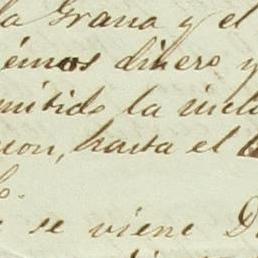 la Grana y el
emos dinero y
mitido la inclu
on, hasta el
se viene D